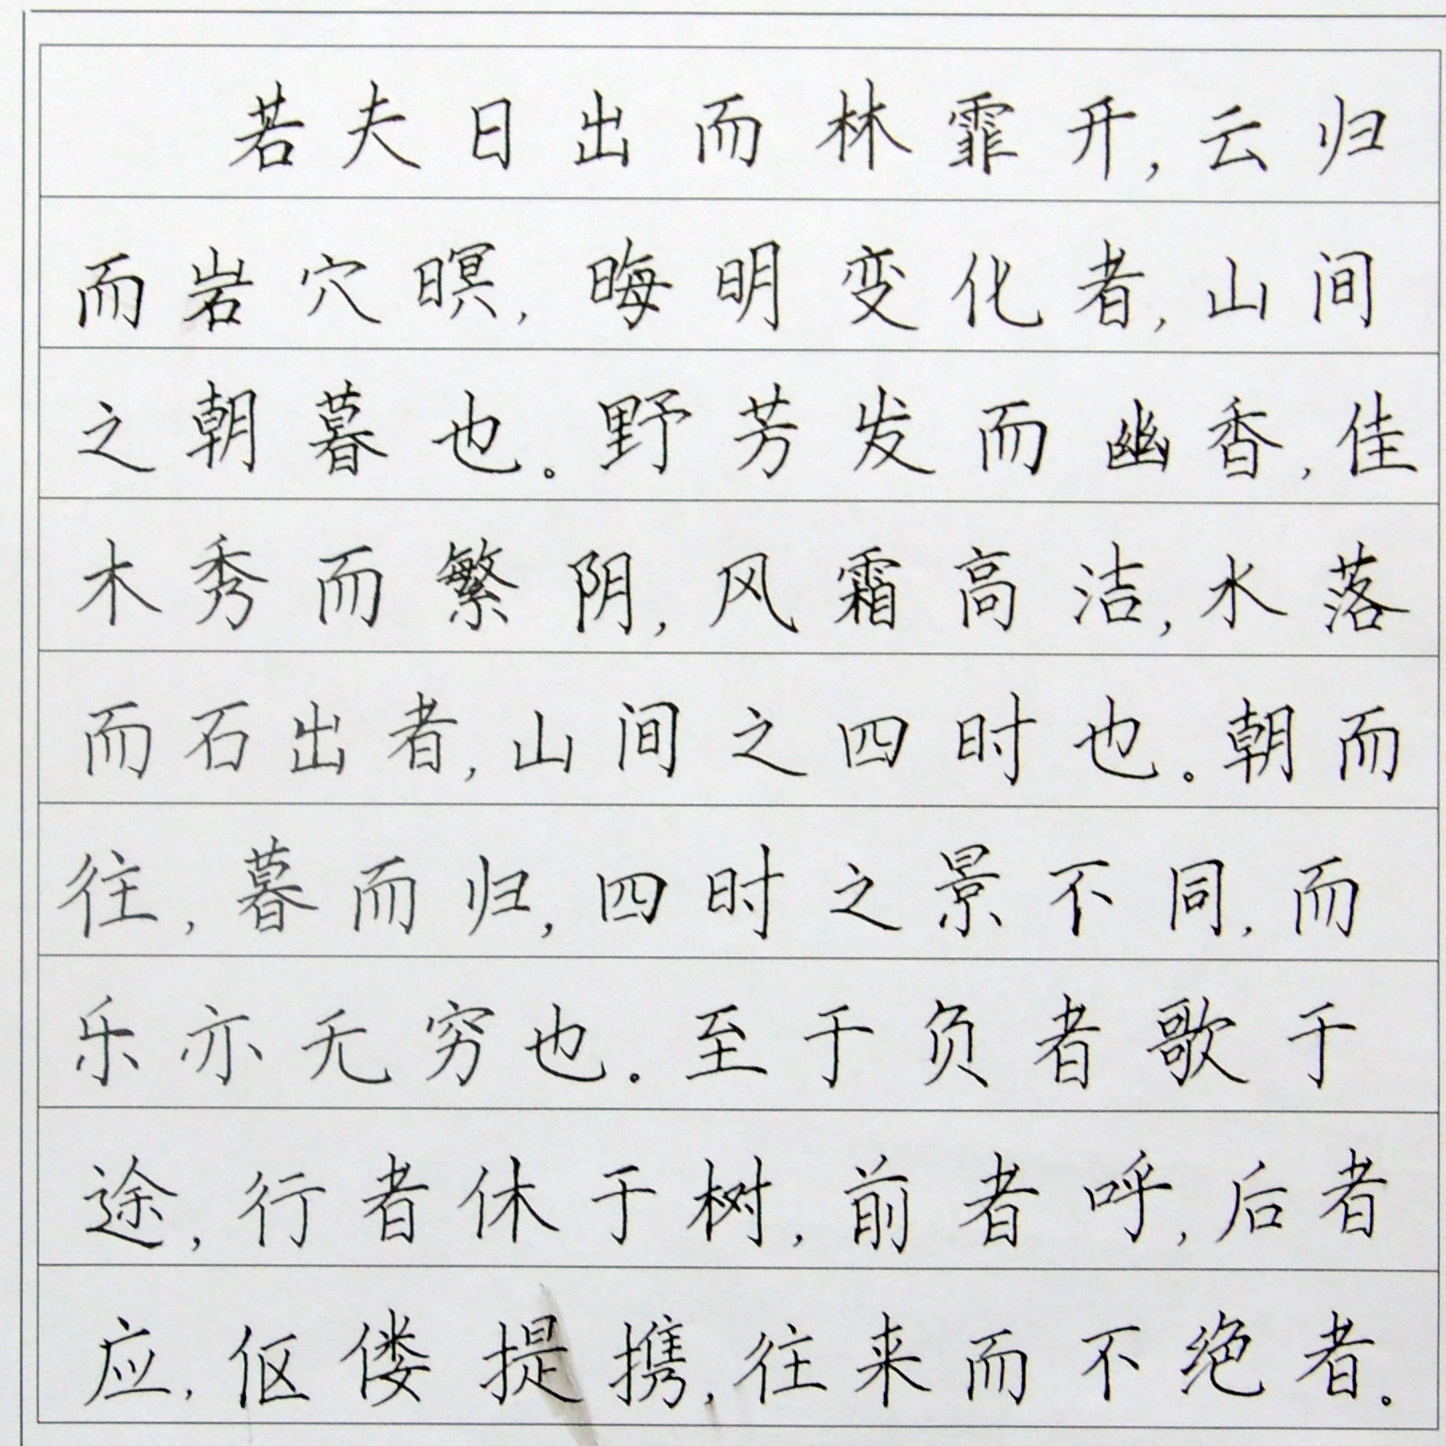 若夫日出而林霏开,云归
而岩穴暝,晦明变化者,山间
之朝暮也。野芳发而幽香,佳
木秀而繁阴,风霜高洁,水落
而石出者,山间之四时也。朝而
往,暮而归,四时之景不同,而
乐亦无穷也。至于负者歌于
途,行者休于树,前者呼,后者
应,伛偻提携,往来而不绝者。